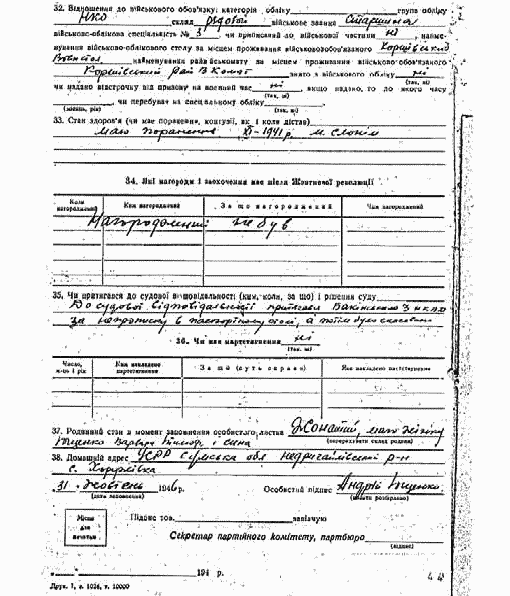 32. Відношення до військового обов'язку: категорія обліку група обліку
НКО склад рядовой військове звання Старшина
військово-облікова спеціальність № 3 чи приписаний до військової частини ні, найме-
нування військово-облікового столу за місцем проживання військовозобов'язаного
найменування райвійськомату за місцем проживання військово-обов'язаного
знято з військового обліку ні
(так, ні)
чи надано відстрочку від призову на воєнний час ні, якщо надано, то до якого часу
(так, ні)
чи перебуває на спеціальному обліку
(місяць, рік) (так, ні)
33. Стан здоров'я (чи має поранення, контузії, як і коли дістав)
маю поранення XI-1941 р. м. Слонім
34. Які нагороди і заохочення має після Жовтневої революції
Коли нагороджений Ким нагороджений За що нагороджений Чим нагороджений
Нагороджений не був
35. Чи притягався до судової відповідальності (ким, коли, за що) і рішення суду
До судової відповідальності притягався
за непрописку в паспортному столі, а потім було
36. Чи має партстягнення ні
(так, ні)
Число, м-ць і рік Ким накладено партстягнення За що (суть справи) Яке накладено партстягнення
37. Родинний стан в момент заповнення особистого листка Жонатий, маю жінку
(перерахувати склад родини)
Ющенко Варвара і сина
38. Домашній адрес УСРР Сумська обл Недригайлівський р-н
с. Хоружівка
31 жовтень 1946 р. Особистий підпис Андрій Ющенко
(дата заповнення) (писати розбірливо)
Місце для печатки
Підпис тов. завірячую
Секретар партійного комітету, партбюро
(підпис)
194 р.
44
Друк. 7, з. 1026, т. 10000